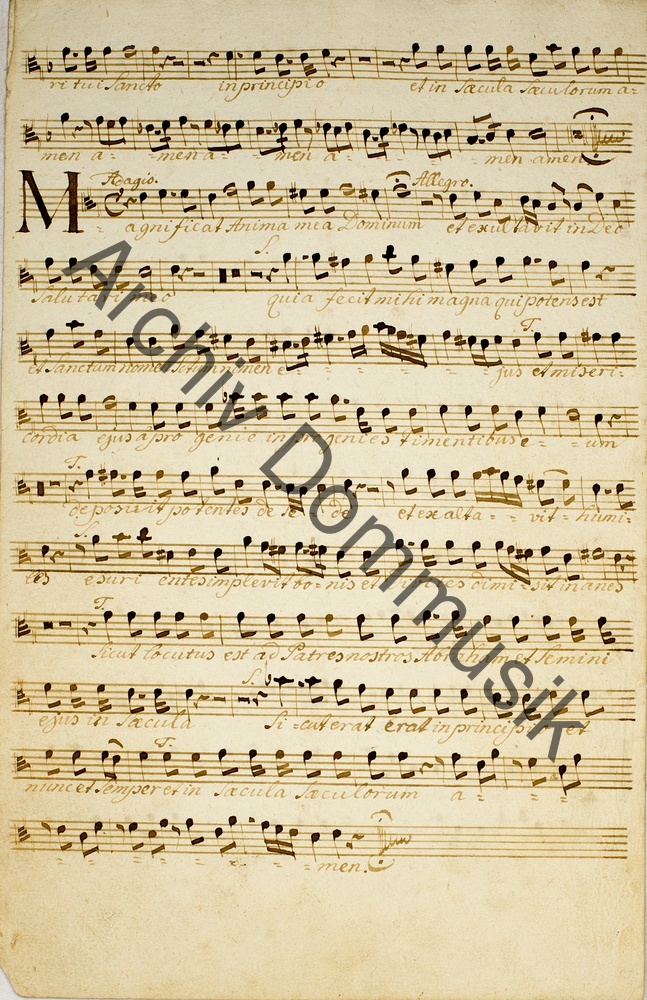 ritui Sancto in principio et in Sæcula Sæculorum a-
men a - - men a - - men a - - men amen
Adagio. Allegro.
Magnificat Anima mea Dominum et exultavit in Deo
S.
Salutari meo quia fecit mihi magna qui potens est
T.
et Sanctum nomen e - - jus et miseri:
cordia ejus a pro genie in progenies timentibus e - - um
T.
deposuit potentes de Se - de et exalta - - vit - humi:
S.
les esuri entes implevit bo - nis et divites dimi - sit inanes
T.
Sicut locutus est ad Patres nostros Abraham et Semini
S.
ejus in Sæcula Si - cut erat erat in principio et
T.
nunc et Semper et in Sæcula Sæculorum a - - -
men.
Archiv Dommusik